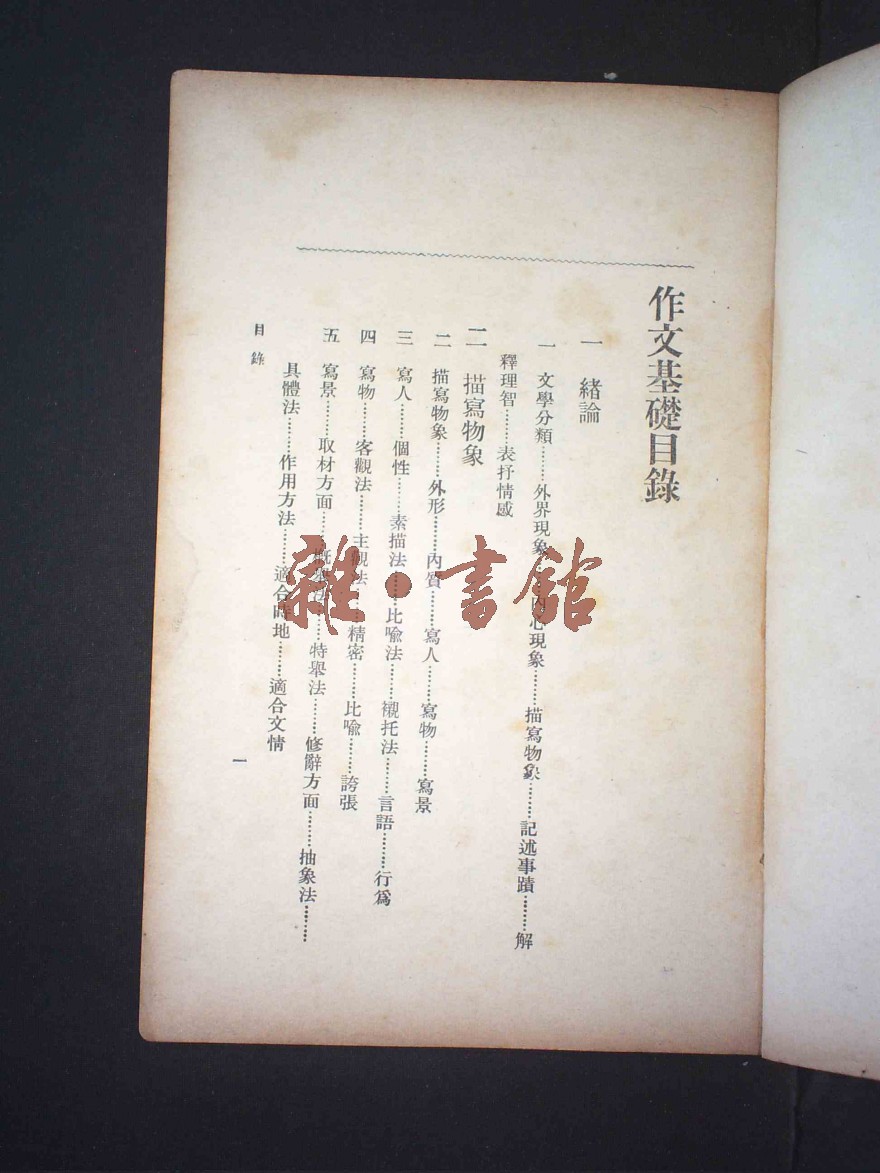 作文基礎目錄
一 緒論
一 文學分類……外界現象……內心現象……描寫物象……記述事蹟……解
釋理智……表抒情感
二 描寫物象
二 描寫物象……外形……內質……寫人……寫物……寫景
三 寫人……個性……素描法……比喩法……襯托法……言語……行爲
四 寫物……客觀法……主觀法……精密……比喩……誇張
五 寫景……取材方面……概舉法……特舉法……修辭方面……抽象法……
具體法……作用方法……適合時地……適合文情
目錄
一
雜·書館